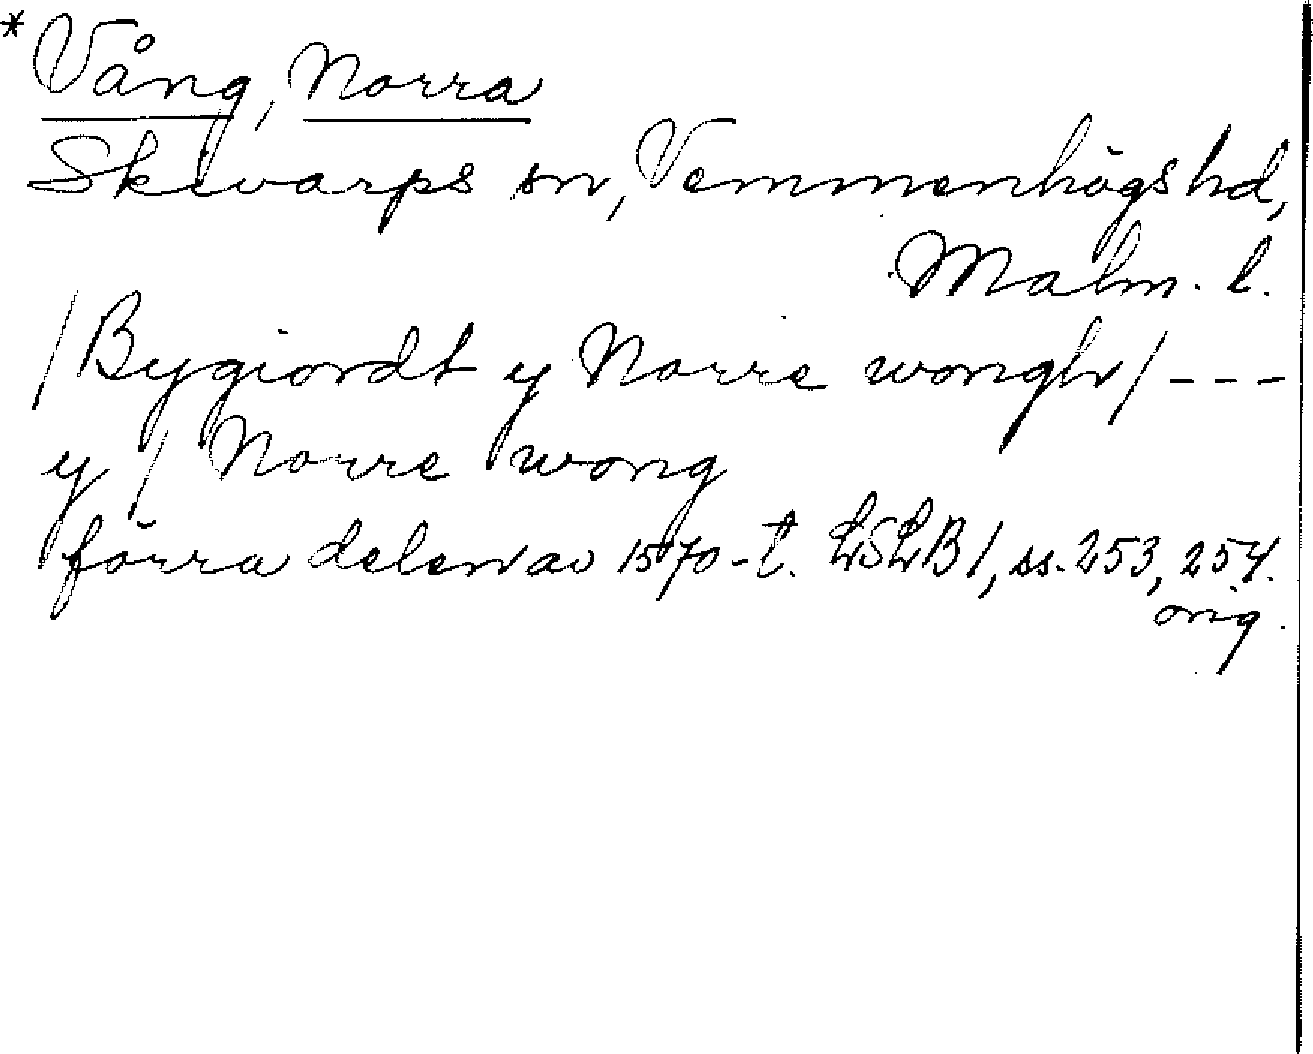 *Vång, Norra
Skivarps sn, Vemmenhögs hd,
Malm. l.
/Bygiordt y Norre wongh/ ---
y / Norre wong
förra delen av 1570-t. LSLB 1, ss. 253, 254.
orig.